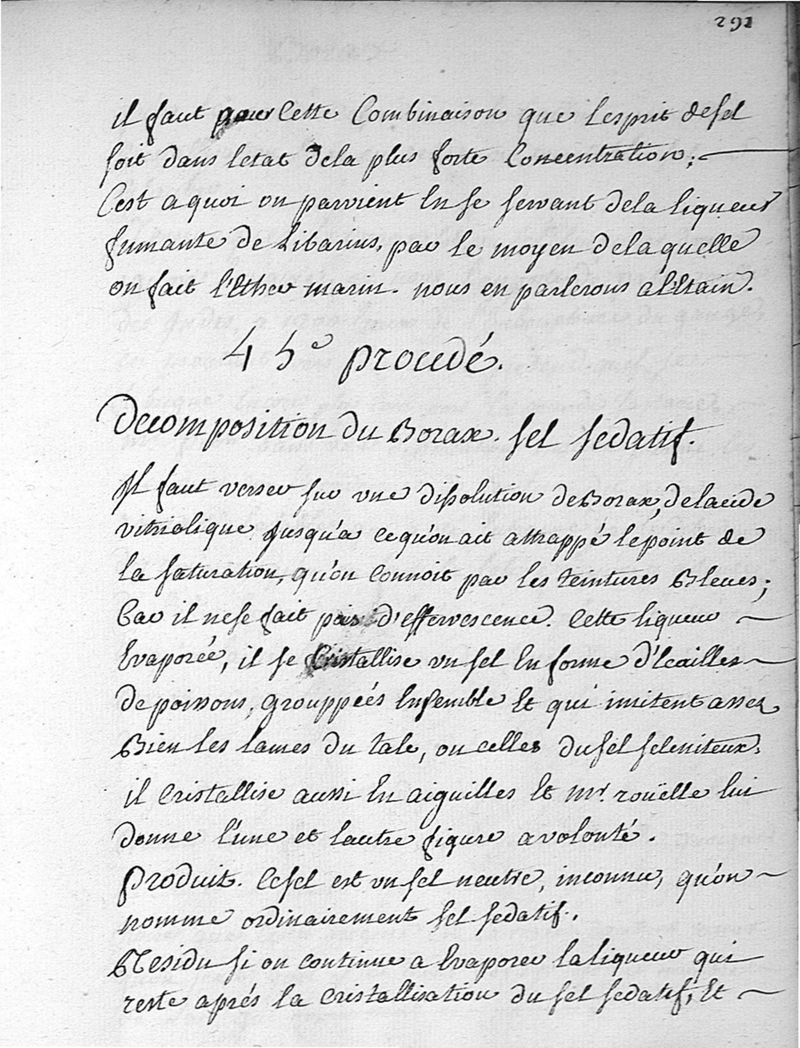 291
il faut pour Cette Combinaison que lesprit de sel
soit dans letat dela plus forte Concentration;
C'est a quoi on parvient En se servant dela liqueur
fumante de Libarius, par le moyen de laquelle
on fait l'Ether marin. nous en parlerons a l'Etain.
45e procedé.
Decomposition du Borax. sel sedatif.
Il faut verser sur une dissolution de Borax, de lacide
vitriolique Jusqu'a ce qu'on ait attrappé le point de
la saturation, qu'on Connoit par les teintures Bleues;
Car il ne se fait pas d'effervescence. Cette liqueur
Evaporée, il se Cristallise un sel En forme d'Ecailles
de poissons, grouppeés Ensemble Et qui imitent assez
Bien les lames du talc, ou celles du sel seleniteux.
il Cristallise aussi En aiguilles Et mr. roüelle lui
donne l'une et lautre figure a volonté.
Produit. Ce sel est un sel neutre, inconnu, qu'on
nomme ordinairement sel sedatif.
Residu si on continue a Evaporer la liqueur qui
reste aprés la Cristallisation du sel sedatif, Et